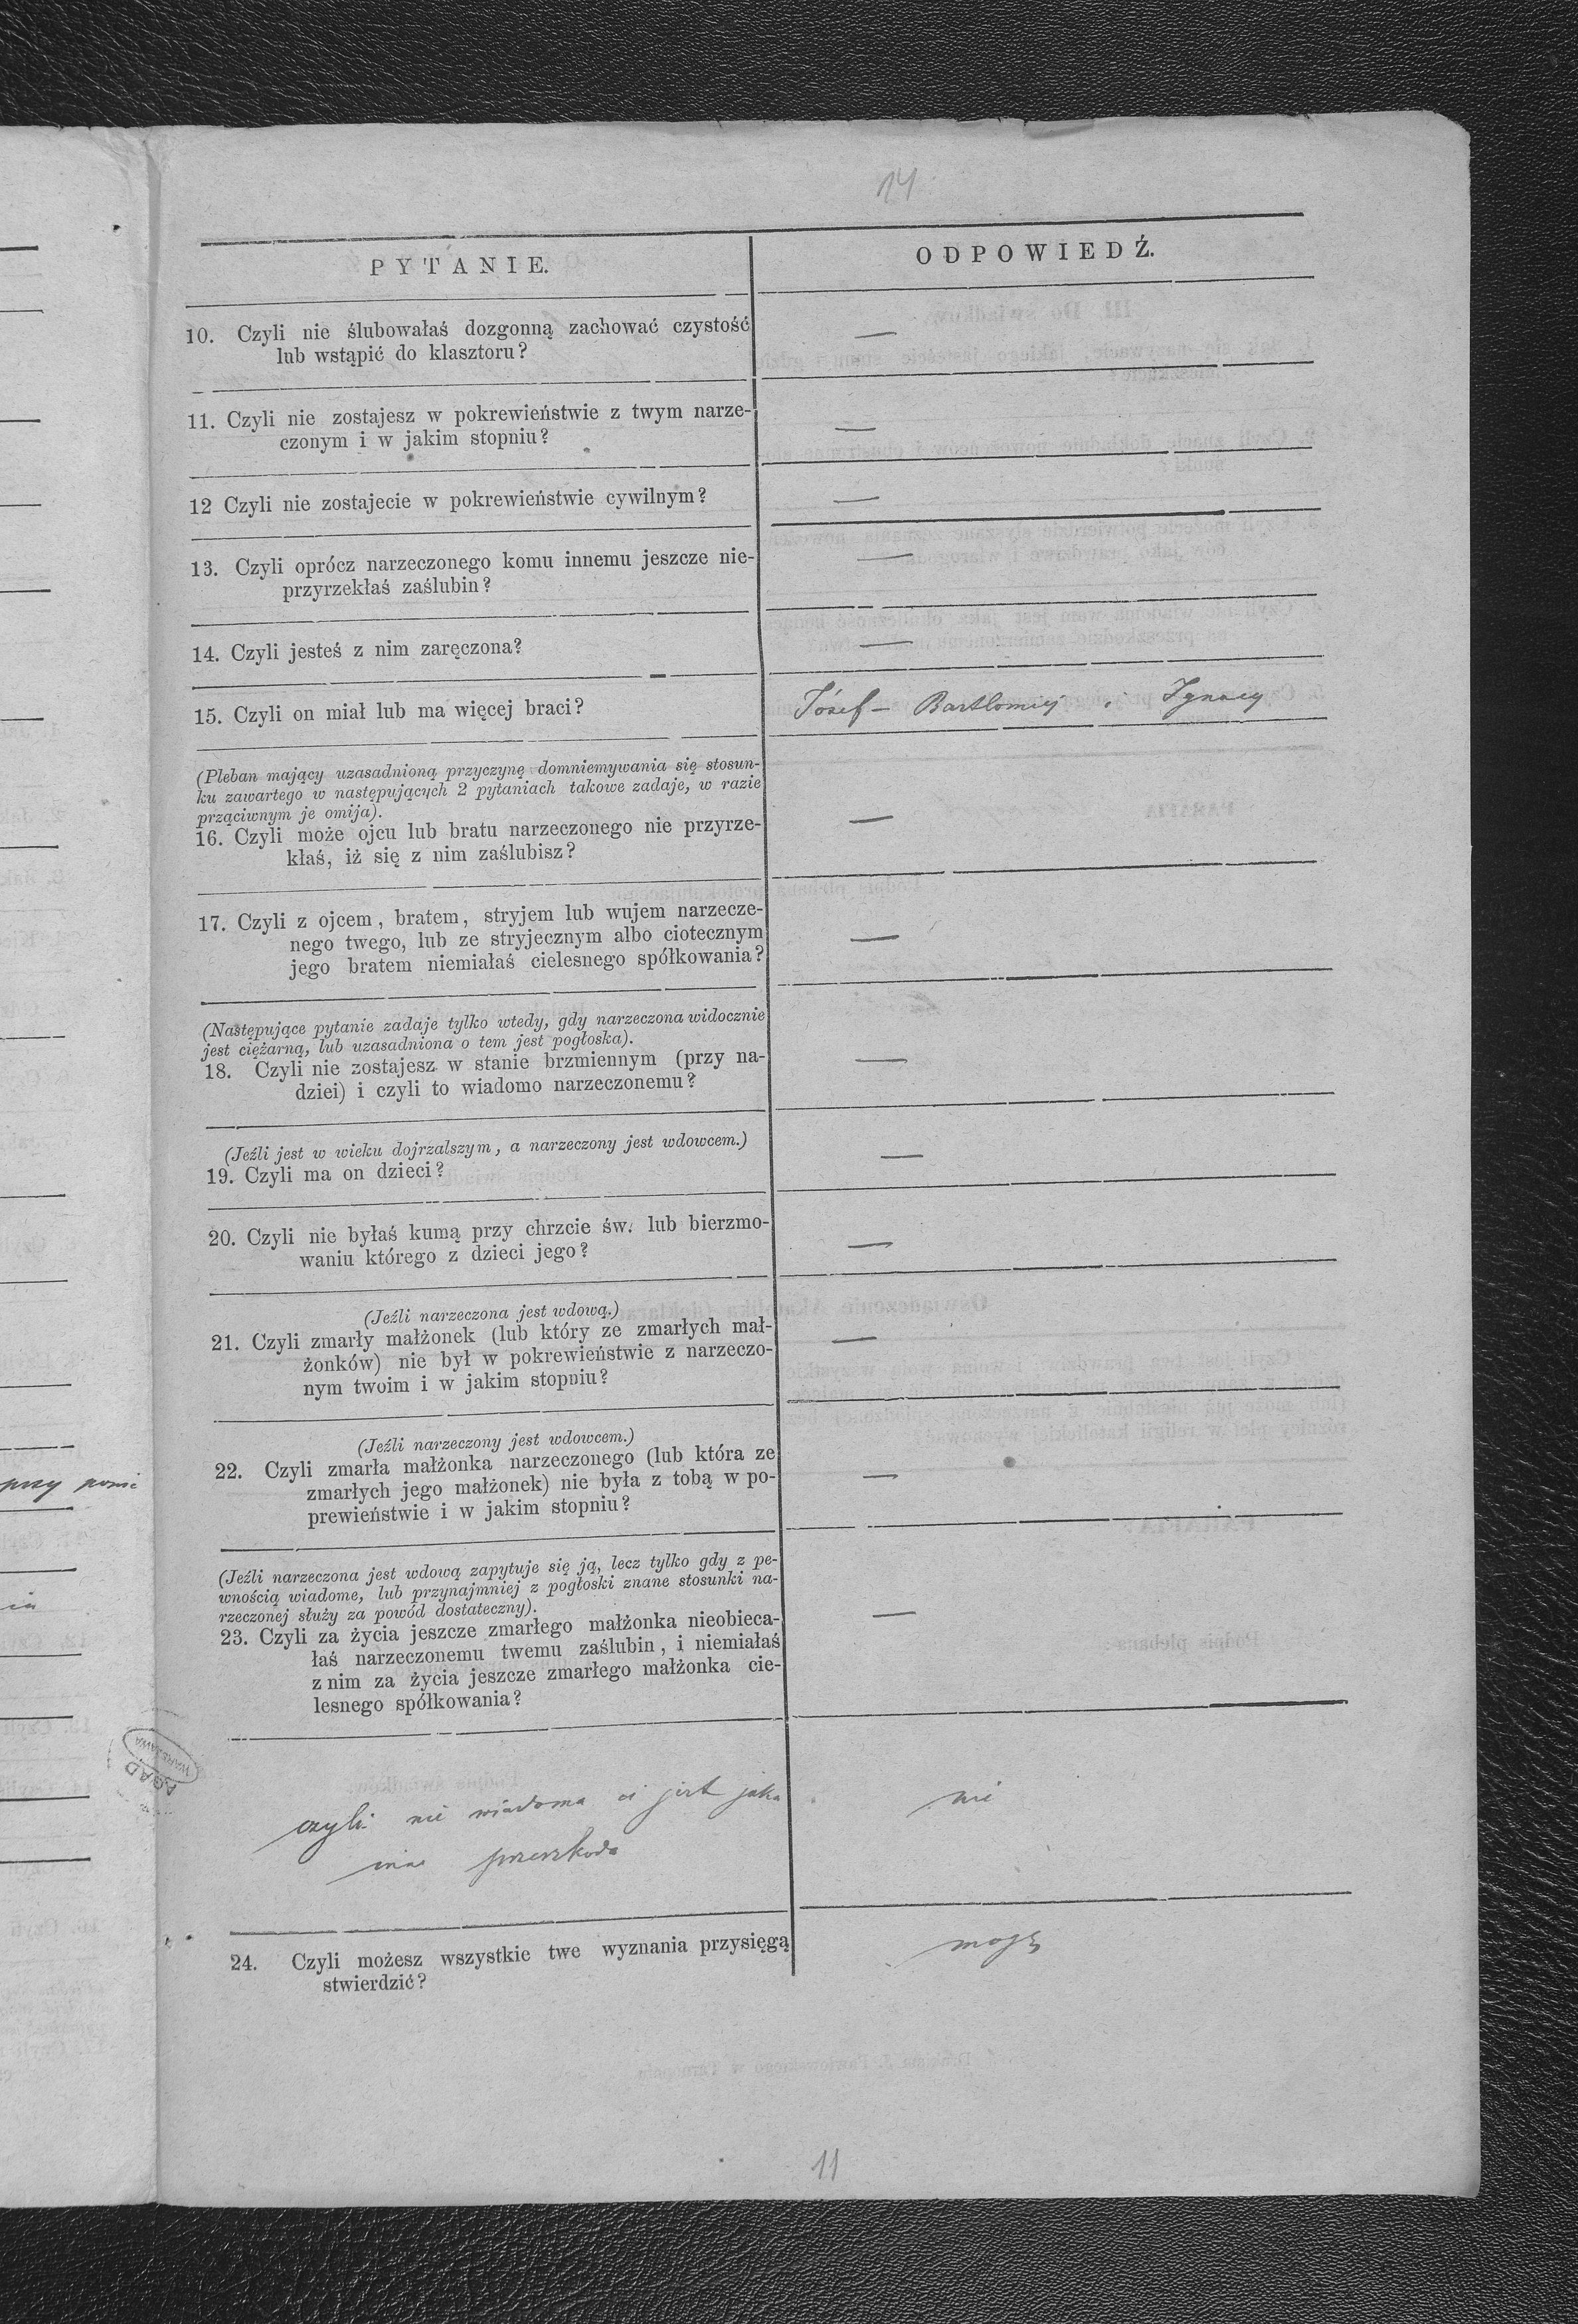 14
PYTANIE.
ODPOWIEDŹ.
10. Czyli nie ślubowałaś dozgonną zachować czystość
lub wstąpić do klasztoru?
—
11. Czyli nie zostajesz w pokrewieństwie z twym narze-
czonym i w jakim stopniu?
—
12 Czyli nie zostajecie w pokrewieństwie cywilnym?
—
13. Czyli oprócz narzeczonego komu innemu jeszcze nie-
przyrzekłaś zaślubin?
—
14. Czyli jesteś z nim zaręczona?
—
15. Czyli on miał lub ma więcej braci?
Józef – Bartłomiej i Ignacy
(Pleban mający uzasadnioną przyczynę domniemywania się stosun-
ku zawartego w następujących 2 pytaniach takowe zadaje, w razie
prząciwnym je omija).
16. Czyli może ojcu lub bratu narzeczonego nie przyrze-
kłaś, iż się z nim zaślubisz?
—
17. Czyli z ojcem, bratem, stryjem lub wujem narzecze-
nego twego, lub ze stryjecznym albo ciotecznym
jego bratem niemiałaś cielesnego spółkowania?
—
(Następujące pytanie zadaje tylko wtedy, gdy narzeczona widocznie
jest ciężarną, lub uzasadniona o tem jest pogłoska).
18. Czyli nie zostajesz w stanie brzmiennym (przy na-
dziei) i czyli to wiadomo narzeczonemu?
—
(Jeźli jest w wieku dojrzalszym, a narzeczony jest wdowcem.)
19. Czyli ma on dzieci?
—
20. Czyli nie byłaś kumą przy chrzcie św. lub bierzmo-
waniu którego z dzieci jego?
—
(Jeźli narzeczona jest wdową.)
21. Czyli zmarły małżonek (lub który ze zmarłych mał-
żonków) nie był w pokrewieństwie z narzeczo-
nym twoim i w jakim stopniu?
—
(Jeźli narzeczony jest wdowcem.)
22. Czyli zmarła małżonka narzeczonego (lub która ze
zmarłych jego małżonek) nie była z tobą w po-
prewieństwie i w jakim stopniu?
—
(Jeźli narzeczona jest wdową zapytuje się ją, lecz tylko gdy z pe-
wnością wiadome, lub przynajmniej z pogłoski znane stosunki na-
rzeczonej służy za powód dostateczny).
23. Czyli za życia jeszcze zmarłego małżonka nieobieca-
łaś narzeczonemu twemu zaślubin, i niemiałaś
z nim za życia jeszcze zmarłego małżonka cie-
lesnego spółkowania?
—
AGAD
WARSZAWA
czyli nie wiadoma ci jest jaka
inna przeszkoda
nie
24. Czyli możesz wszystkie twe wyznania przysięgą
stwierdzić?
mogę
11